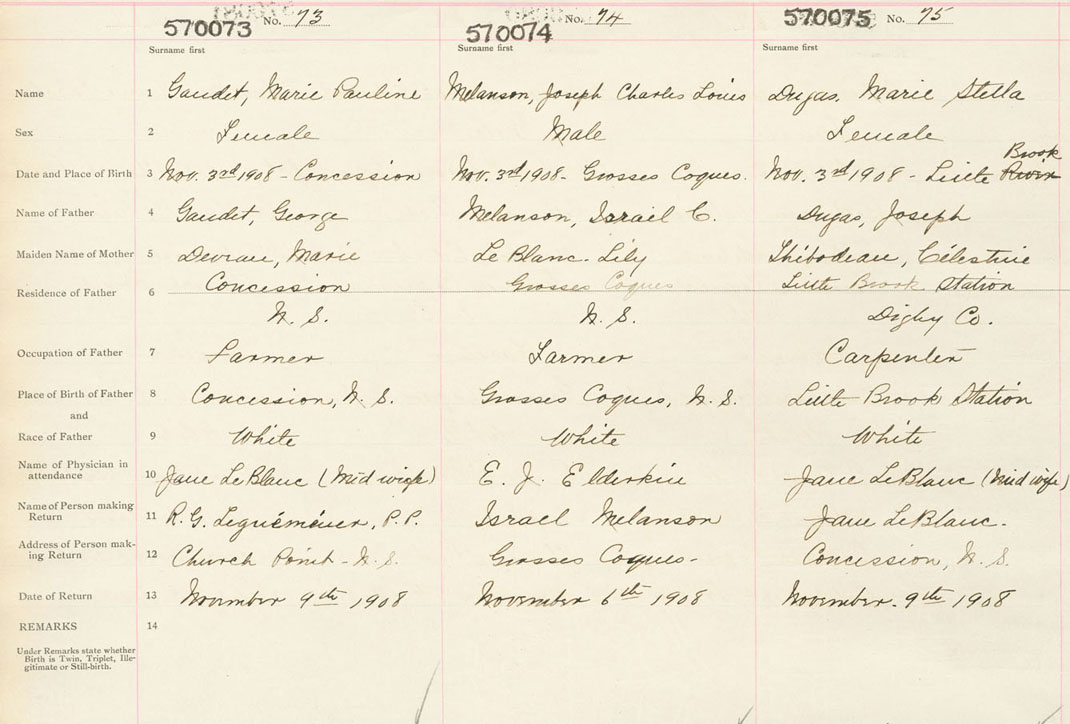 570073 No. 73 570074 No. 74 570075 No. 75
Surname first Surname first Surname first
Name 1 Gaudet, Marie Pauline Melanson, Joseph Charles Louis Dugas. Marie Stella
Sex 2 Female Male Female
Brook
Date and Place of Birth 3 Nov. 3rd 1908 - Concession Nov. 3rd 1908 - Grosses Coques. Nov. 3rd 1908 - Little River
Name of Father 4 Gaudet, George Melanson, Israil C. Dugas, Joseph
Maiden Name of Mother 5 Deveau, Marie Le Blanc - Lily Thibodeau, Célestine
Residence of Father 6 Concession Grosses Coques Little Brook Station
N. S. N. S. Digby Co.
Occupation of Father 7 Farmer Farmer Carpenter
Place of Birth of Father 8 Concession, N. S. Grosses Coques, N. S. Little Brook Station
and
Race of Father 9 White White White
Name of Physician in
attendance 10 Jane LeBlanc (Mid wife) E. J. Elderkin Jane LeBlanc (Mid wife)
Name of Person making
Return 11 R. G. P. P. Israel Melanson Jane LeBlanc.
Address of Person mak-
ing Return 12 Church Point - N. S. Grosses Coques - Concession, N. S.
Date of Return 13 November 9th 1908 November 6th 1908 November. 9th 1908
REMARKS 14
Under Remarks state whether
Birth is Twin, Triplet, Ille-
gitimate or Still-birth.